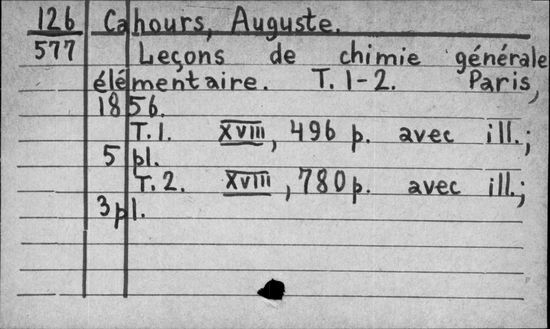 126 Cahours, Auguste.
577 Leçons de chimie générale
élémentaire. T. 1-2. Paris,
1856.
T. 1. XVIII, 496 p. avec ill.;
5 pl.
T. 2. XVIII, 780 p. avec ill.;
3 pl.